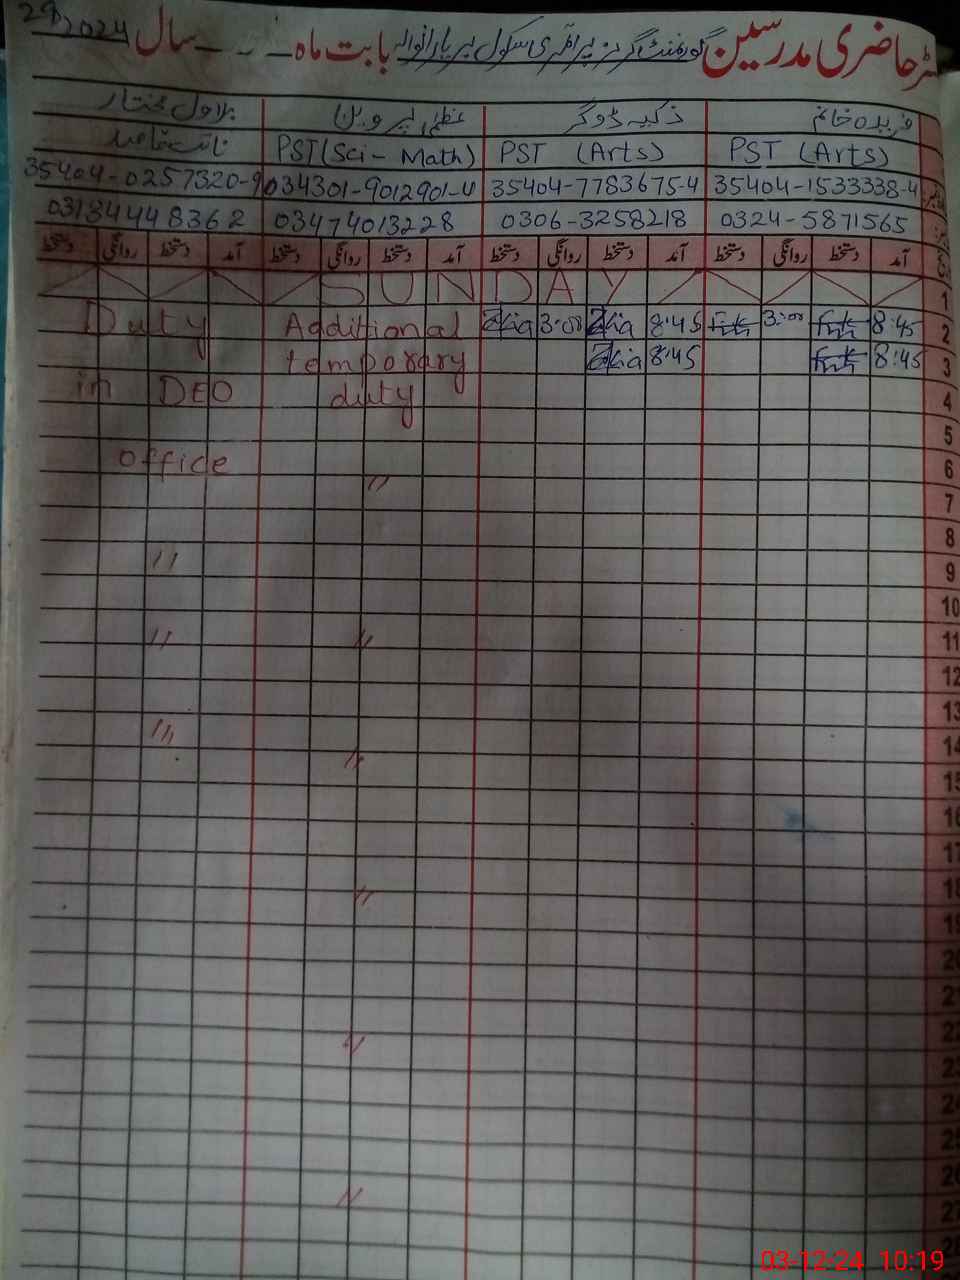 رجسٹر حاضری مدرسین گورنمنٹ گرلز پرائمری سکول بابت ماہ سال 2024
فریدہ خانم ذکیہ ڈوگر عظمیٰ پروین بلاول مختار
PST (Arts) PST (Arts) PST (Sci - Math) نائب قاصد
35404-1533338-4 35404-7783675-4 34301-9012901-4 35404-0257320-9
0324-5871565 0306-3258218 03474013228 03134448362
آمد دستخط روانگی دستخط آمد دستخط روانگی دستخط آمد دستخط روانگی دستخط آمد دستخط روانگی دستخط
SUNDAY 1
Duty Additional Zkia 3:00 Zkia 8:45 3:00 8:45 2
temporary Zkia 8:45 8:45 3
in DEO duty 4
5
office 6
〃 7
8
〃 9
10
〃 〃 11
12
13
〃 〃 14
15
16
17
〃 18
19
20
21
22
〃 23
24
25
26
〃 27
28
03-12-24 10:19